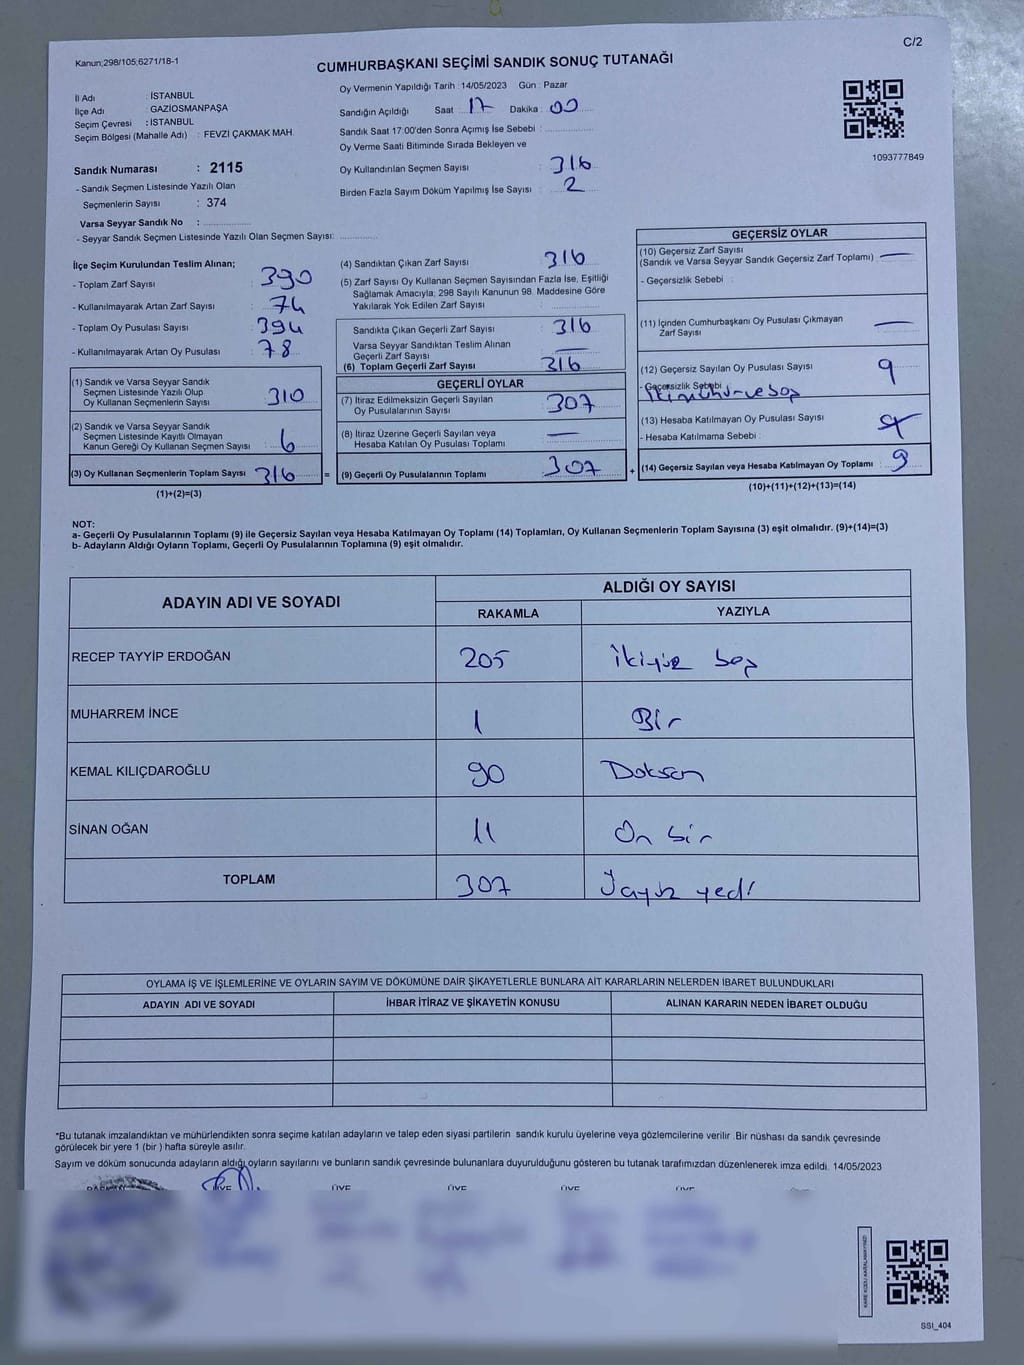 C/2
Kanun;298/105;6271/18-1
CUMHURBAŞKANI SEÇİMİ SANDIK SONUÇ TUTANAĞI
İl Adı : İSTANBUL
İlçe Adı : GAZİOSMANPAŞA
Seçim Çevresi : İSTANBUL
Seçim Bölgesi (Mahalle Adı) : FEVZİ ÇAKMAK MAH.
Sandık Numarası : 2115
- Sandık Seçmen Listesinde Yazılı Olan
Seçmenlerin Sayısı : 374
Varsa Seyyar Sandık No :
- Seyyar Sandık Seçmen Listesinde Yazılı Olan Seçmen Sayısı:
Oy Vermenin Yapıldığı Tarih : 14/05/2023 Gün : Pazar
Sandığın Açıldığı Saat : 17 Dakika : 00
Sandık Saat 17:00'den Sonra Açımış İse Sebebi :
Oy Verme Saati Bitiminde Sırada Bekleyen ve
Oy Kullandırılan Seçmen Sayısı : 316
Birden Fazla Sayım Döküm Yapılmış İse Sayısı : 2
1093777849
İlçe Seçim Kurulundan Teslim Alınan;
- Toplam Zarf Sayısı : 390
- Kullanılmayarak Artan Zarf Sayısı : 74
- Toplam Oy Pusulası Sayısı : 394
- Kullanılmayarak Artan Oy Pusulası : 78
(1) Sandık ve Varsa Seyyar Sandık
Seçmen Listesinde Yazılı Olup
Oy Kullanan Seçmenlerin Sayısı : 310
(2) Sandık ve Varsa Seyyar Sandık
Seçmen Listesinde Kayıtlı Olmayan
Kanun Gereği Oy Kullanan Seçmen Sayısı : 6
(3) Oy Kullanan Seçmenlerin Toplam Sayısı : 316 =
(1)+(2)=(3)
(4) Sandıktan Çıkan Zarf Sayısı : 316
(5) Zarf Sayısı Oy Kullanan Seçmen Sayısından Fazla İse, Eşitliği
Sağlamak Amacıyla; 298 Sayılı Kanunun 98. Maddesine Göre
Yakılarak Yok Edilen Zarf Sayısı :
Sandıkta Çıkan Geçerli Zarf Sayısı : 316
Varsa Seyyar Sandıktan Teslim Alınan
Geçerli Zarf Sayısı : —
(6) Toplam Geçerli Zarf Sayısı : 316
GEÇERLİ OYLAR
(7) İtiraz Edilmeksizin Geçerli Sayılan
Oy Pusulalarının Sayısı : 307
(8) İtiraz Üzerine Geçerli Sayılan veya
Hesaba Katılan Oy Pusulası Toplamı : —
(9) Geçerli Oy Pusulalarının Toplamı : 307 +
GEÇERSİZ OYLAR
(10) Geçersiz Zarf Sayısı
(Sandık ve Varsa Seyyar Sandık Geçersiz Zarf Toplamı) : —
- Geçersizlik Sebebi :
(11) İçinden Cumhurbaşkanı Oy Pusulası Çıkmayan
Zarf Sayısı : —
(12) Geçersiz Sayılan Oy Pusulası Sayısı : 9
- Geçersizlik Sebebi
(13) Hesaba Katılmayan Oy Pusulası Sayısı :
- Hesaba Katılmama Sebebi :
(14) Geçersiz Sayılan veya Hesaba Katılmayan Oy Toplamı : 9
(10)+(11)+(12)+(13)=(14)
NOT:
a- Geçerli Oy Pusulalarının Toplamı (9) ile Geçersiz Sayılan veya Hesaba Katılmayan Oy Toplamı (14) Toplamları, Oy Kullanan Seçmenlerin Toplam Sayısına (3) eşit olmalıdır. (9)+(14)=(3)
b- Adayların Aldığı Oyların Toplamı, Geçerli Oy Pusulalarının Toplamına (9) eşit olmalıdır.
ADAYIN ADI VE SOYADI ALDIĞI OY SAYISI
RAKAMLA YAZIYLA
RECEP TAYYİP ERDOĞAN 205 ikiyüz beş
MUHARREM İNCE 1 Bir
KEMAL KILIÇDAROĞLU 90 Doksan
SİNAN OĞAN 11 On bir
TOPLAM 307 Üçyüz yedi
OYLAMA İŞ VE İŞLEMLERİNE VE OYLARIN SAYIM VE DÖKÜMÜNE DAİR ŞİKAYETLERLE BUNLARA AİT KARARLARIN NELERDEN İBARET BULUNDUKLARI
ADAYIN ADI VE SOYADI İHBAR İTİRAZ VE ŞİKAYETİN KONUSU ALINAN KARARIN NEDEN İBARET OLDUĞU
*Bu tutanak imzalandıktan ve mühürlendikten sonra seçime katılan adayların ve talep eden siyasi partilerin sandık kurulu üyelerine veya gözlemcilerine verilir. Bir nüshası da sandık çevresinde
görülecek bir yere 1 (bir ) hafta süreyle asılır.
Sayım ve döküm sonucunda adayların aldığı oyların sayılarını ve bunların sandık çevresinde bulunanlara duyurulduğunu gösteren bu tutanak tarafımızdan düzenlenerek imza edildi. 14/05/2023
ÜYE ÜYE ÜYE ÜYE ÜYE
SSI_404